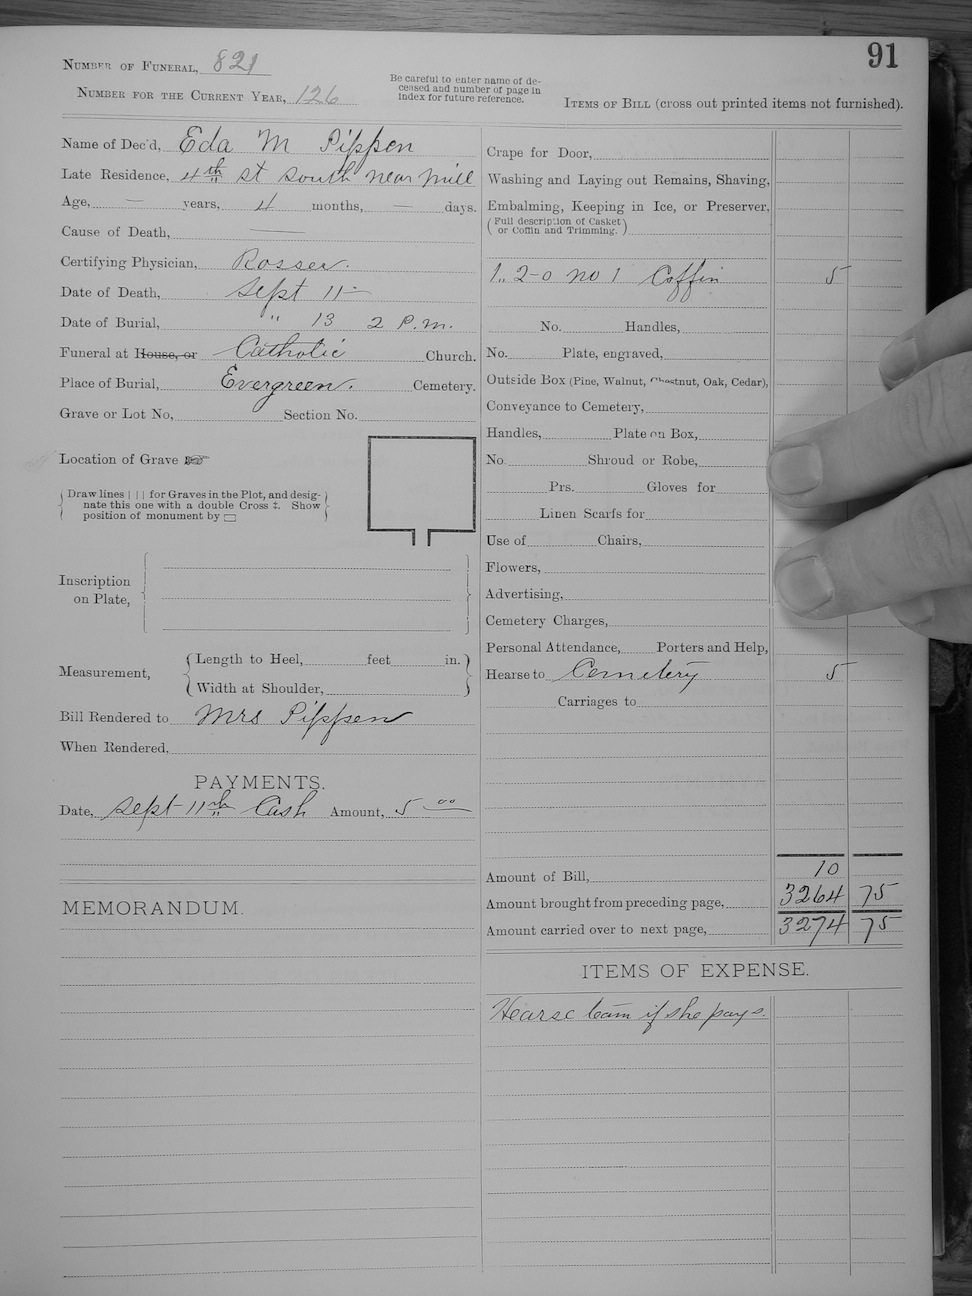 91
NUMBER OF FUNERAL, 821
NUMBER FOR THE CURRENT YEAR, 126
Be careful to enter name of de-
ceased and number of page in
index for future reference.
ITEMS OF BILL (cross out printed items not furnished).
Name of Dec'd, Eda M Pippen
Late Residence, 4th st south near mill
Age, — years, 4 months, — days.
Cause of Death, —
Certifying Physician, Rosser.
Date of Death, Sept 11 —
Date of Burial, " 13 2 P.m.
Funeral at House, or Catholic Church.
Place of Burial, Evergreen. Cemetery.
Grave or Lot No, Section No.
Location of Grave ☞
Draw lines | | | for Graves in the Plot, and desig-
nate this one with a double Cross ‡. Show
position of monument by ▭
Inscription
on Plate,
Measurement,
Length to Heel, feet in.
Width at Shoulder,
Bill Rendered to Mrs Pippen
When Rendered,
PAYMENTS.
Date, Sept 11th Cash Amount, 5 00
MEMORANDUM.
Crape for Door,
Washing and Laying out Remains, Shaving,
Embalming, Keeping in Ice, or Preserver,
(Full description of Casket
or Coffin and Trimming.)
1,, 2-0 no 1 Coffin 5
No. Handles,
No. Plate, engraved,
Outside Box (Pine, Walnut, Chestnut, Oak, Cedar),
Conveyance to Cemetery,
Handles, Plate on Box,
No. Shroud or Robe,
Prs. Gloves for
Linen Scarfs for
Use of Chairs,
Flowers,
Advertising,
Cemetery Charges,
Personal Attendance, Porters and Help,
Hearse to Cemetery 5
Carriages to
Amount of Bill, 10
Amount brought from preceding page, 3264 75
Amount carried over to next page, 3274 75
ITEMS OF EXPENSE.
Hearse team if she pays.